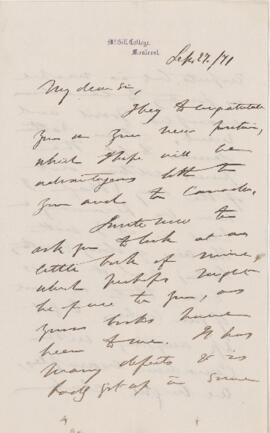 McGill College,
Montreal.
Sep 27./71
My dear Sir,
I beg to congratulate
you on your new position,
which I hope will be
advantageous both to
you and to Canada.
I write now to
ask you to look at a
little book of mine
which perhaps might
be of use to you, as
your books have
been to me. It has
many defects & is
badly got up in some